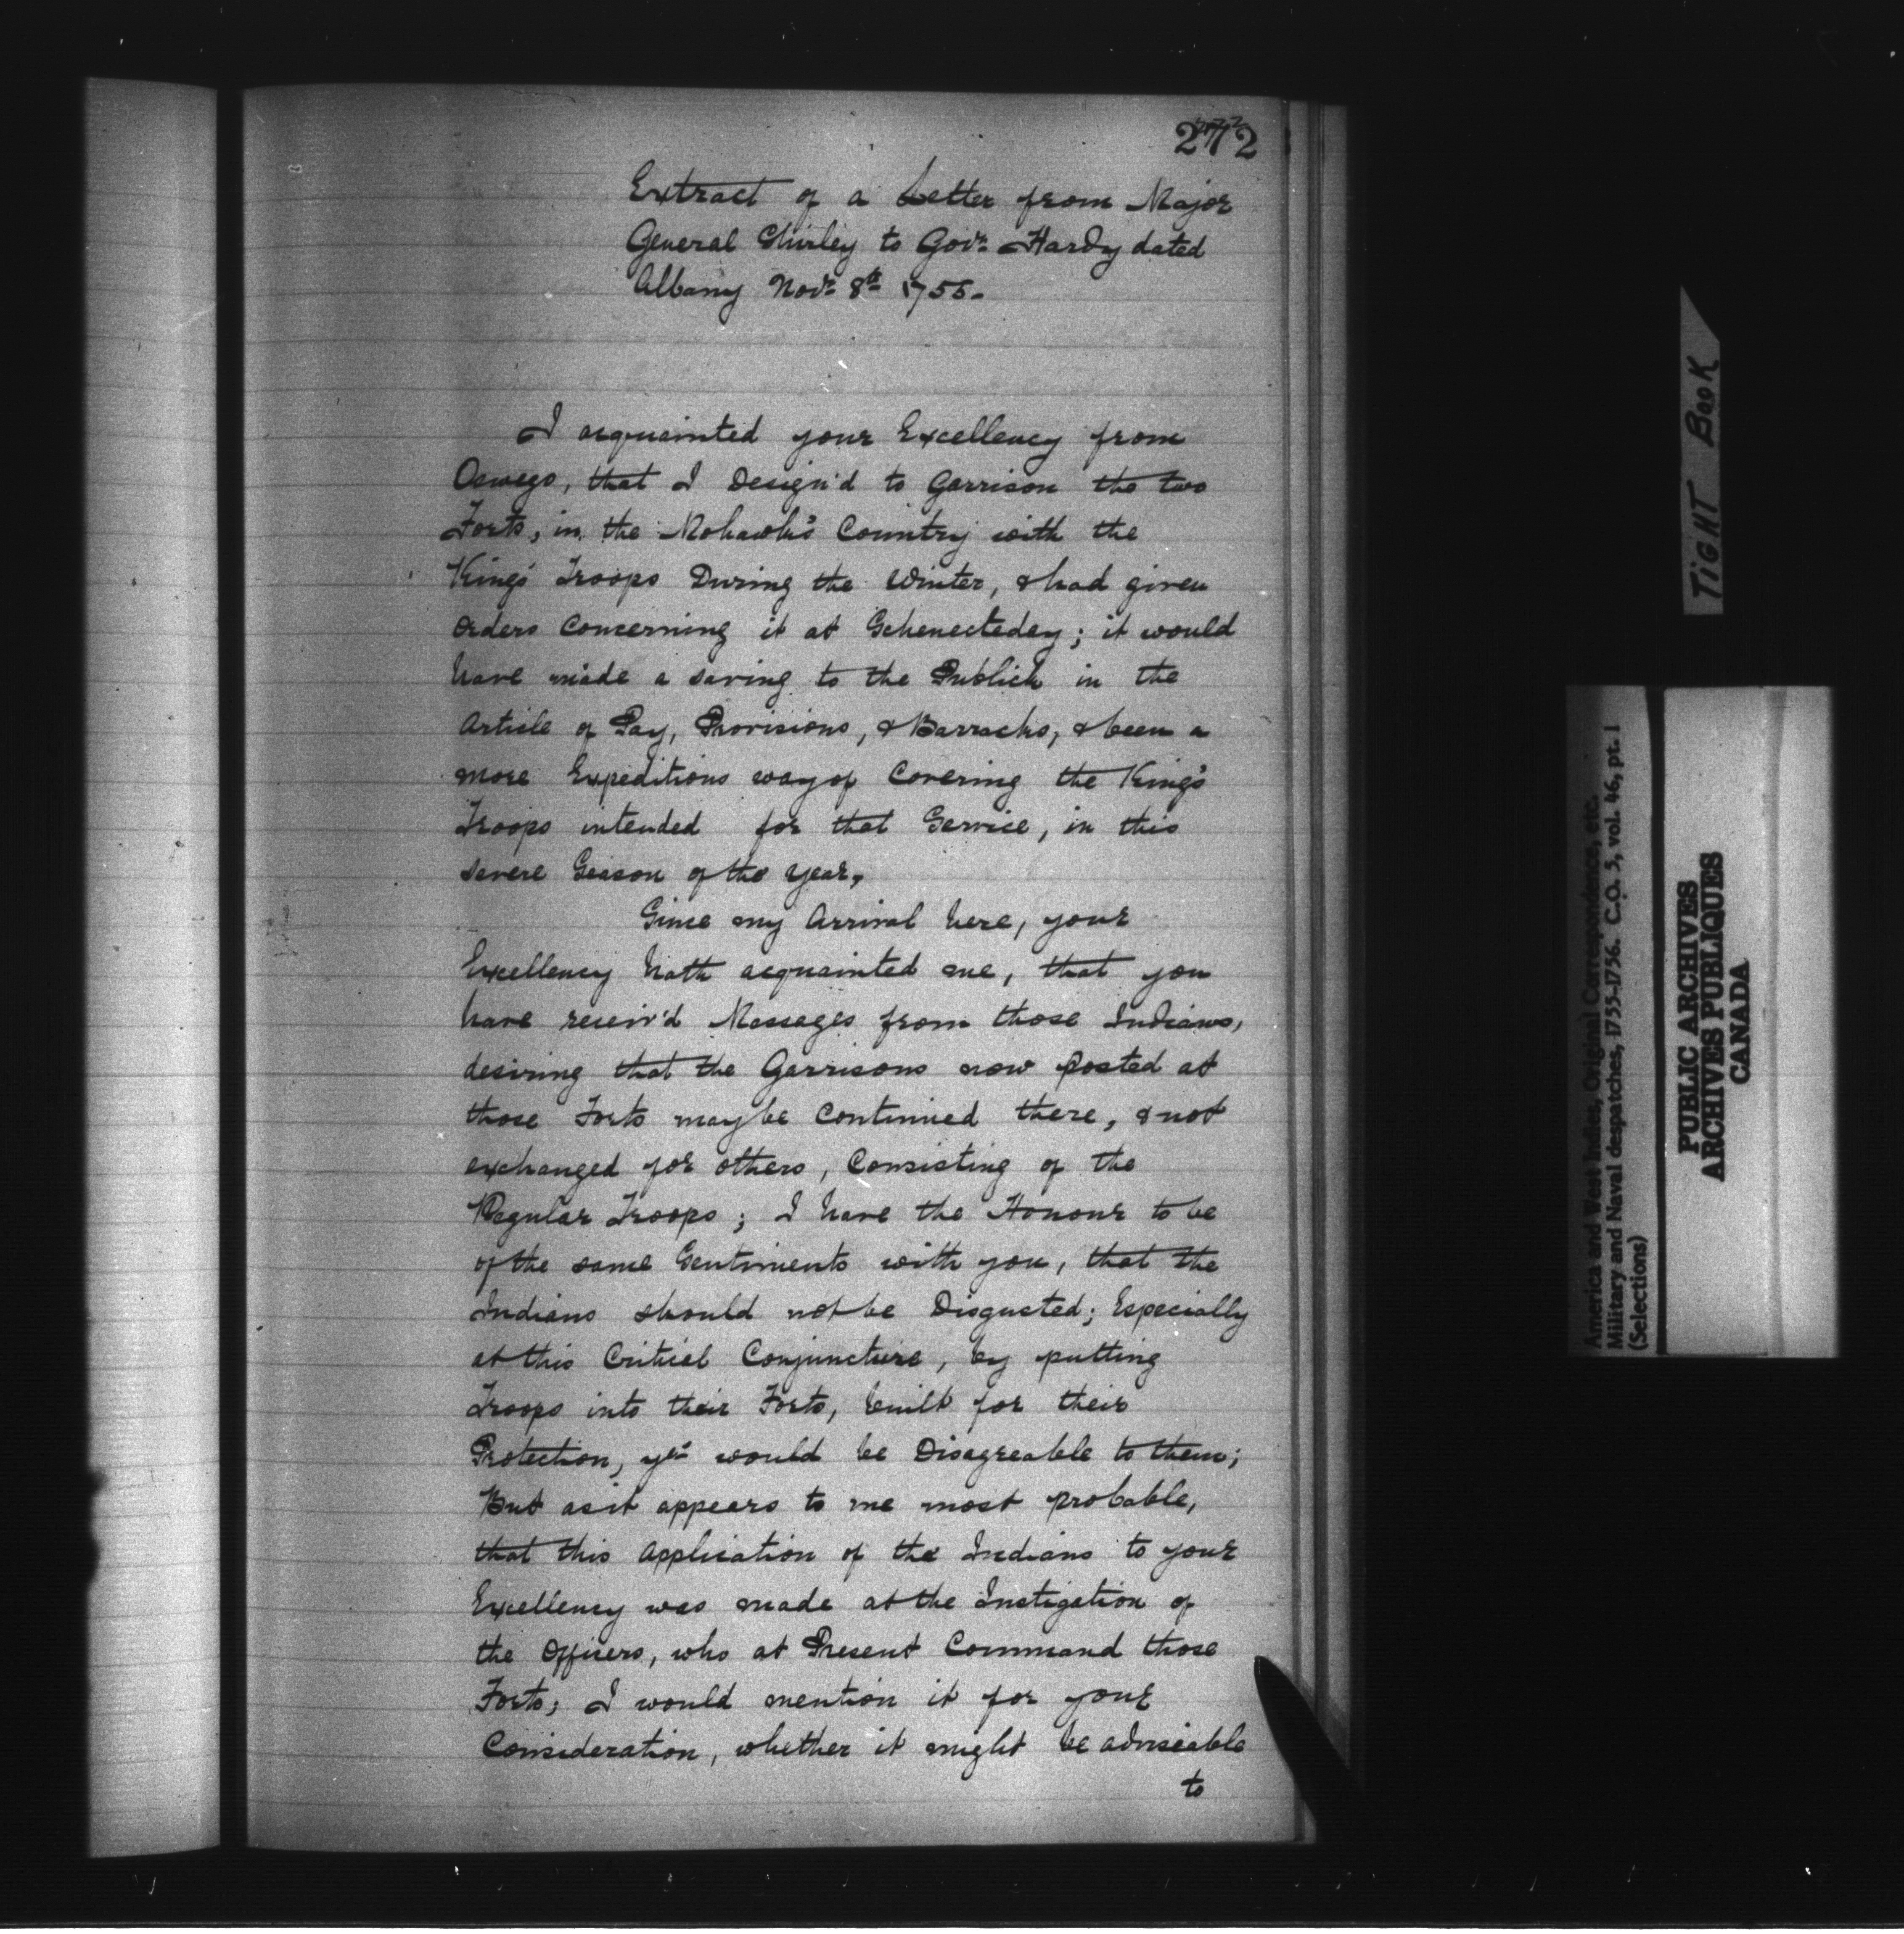 272
Extract of a Letter from Major
General Shirley to Govr. Hardy dated
Albany Novr. 8th 1755-
I acquainted your Excellency from
Oswego, that I Design'd to Garrison the two
Forts, in the Mohawk's Country with the
King's Troops During the Winter, & had given
orders Concerning it at Schenectedey; it would
have made a saving to the Publick in the
Article of Pay, Provisions, & Barracks, & been a
more Expeditious way of Covering the King's
Troops intended for that Service, in this
severe Season of the year,
Since my Arrival here, your
Excellency hath acquainted me, that you
have receiv'd Messages from those Indians,
desiring that the Garrisons now posted at
those Forts may be Continued there, & not
exchanged for others, Consisting of the
Regular Troops; I have the Honour to be
of the same Sentiments with you, that the
Indians should not be Disgusted; Especially
at this Critical Conjuncture, by putting
Troops into their Forts, built for their
Protection, yt would be Disagreable to them;
But as it appears to me most probable,
that this Application of the Indians to your
Excellency was made at the Instigation of
the Officers, who at Present Command those
Forts; I would mention it for your
Consideration, whether it might be adviseable
to
TIGHT BOOK
America and West Indies, Original Correspondence, etc.
Military and Naval despatches, 1755-1756. C.O. 5, vol. 46, pt. 1
(Selections)
PUBLIC ARCHIVES
ARCHIVES PUBLIQUES
CANADA